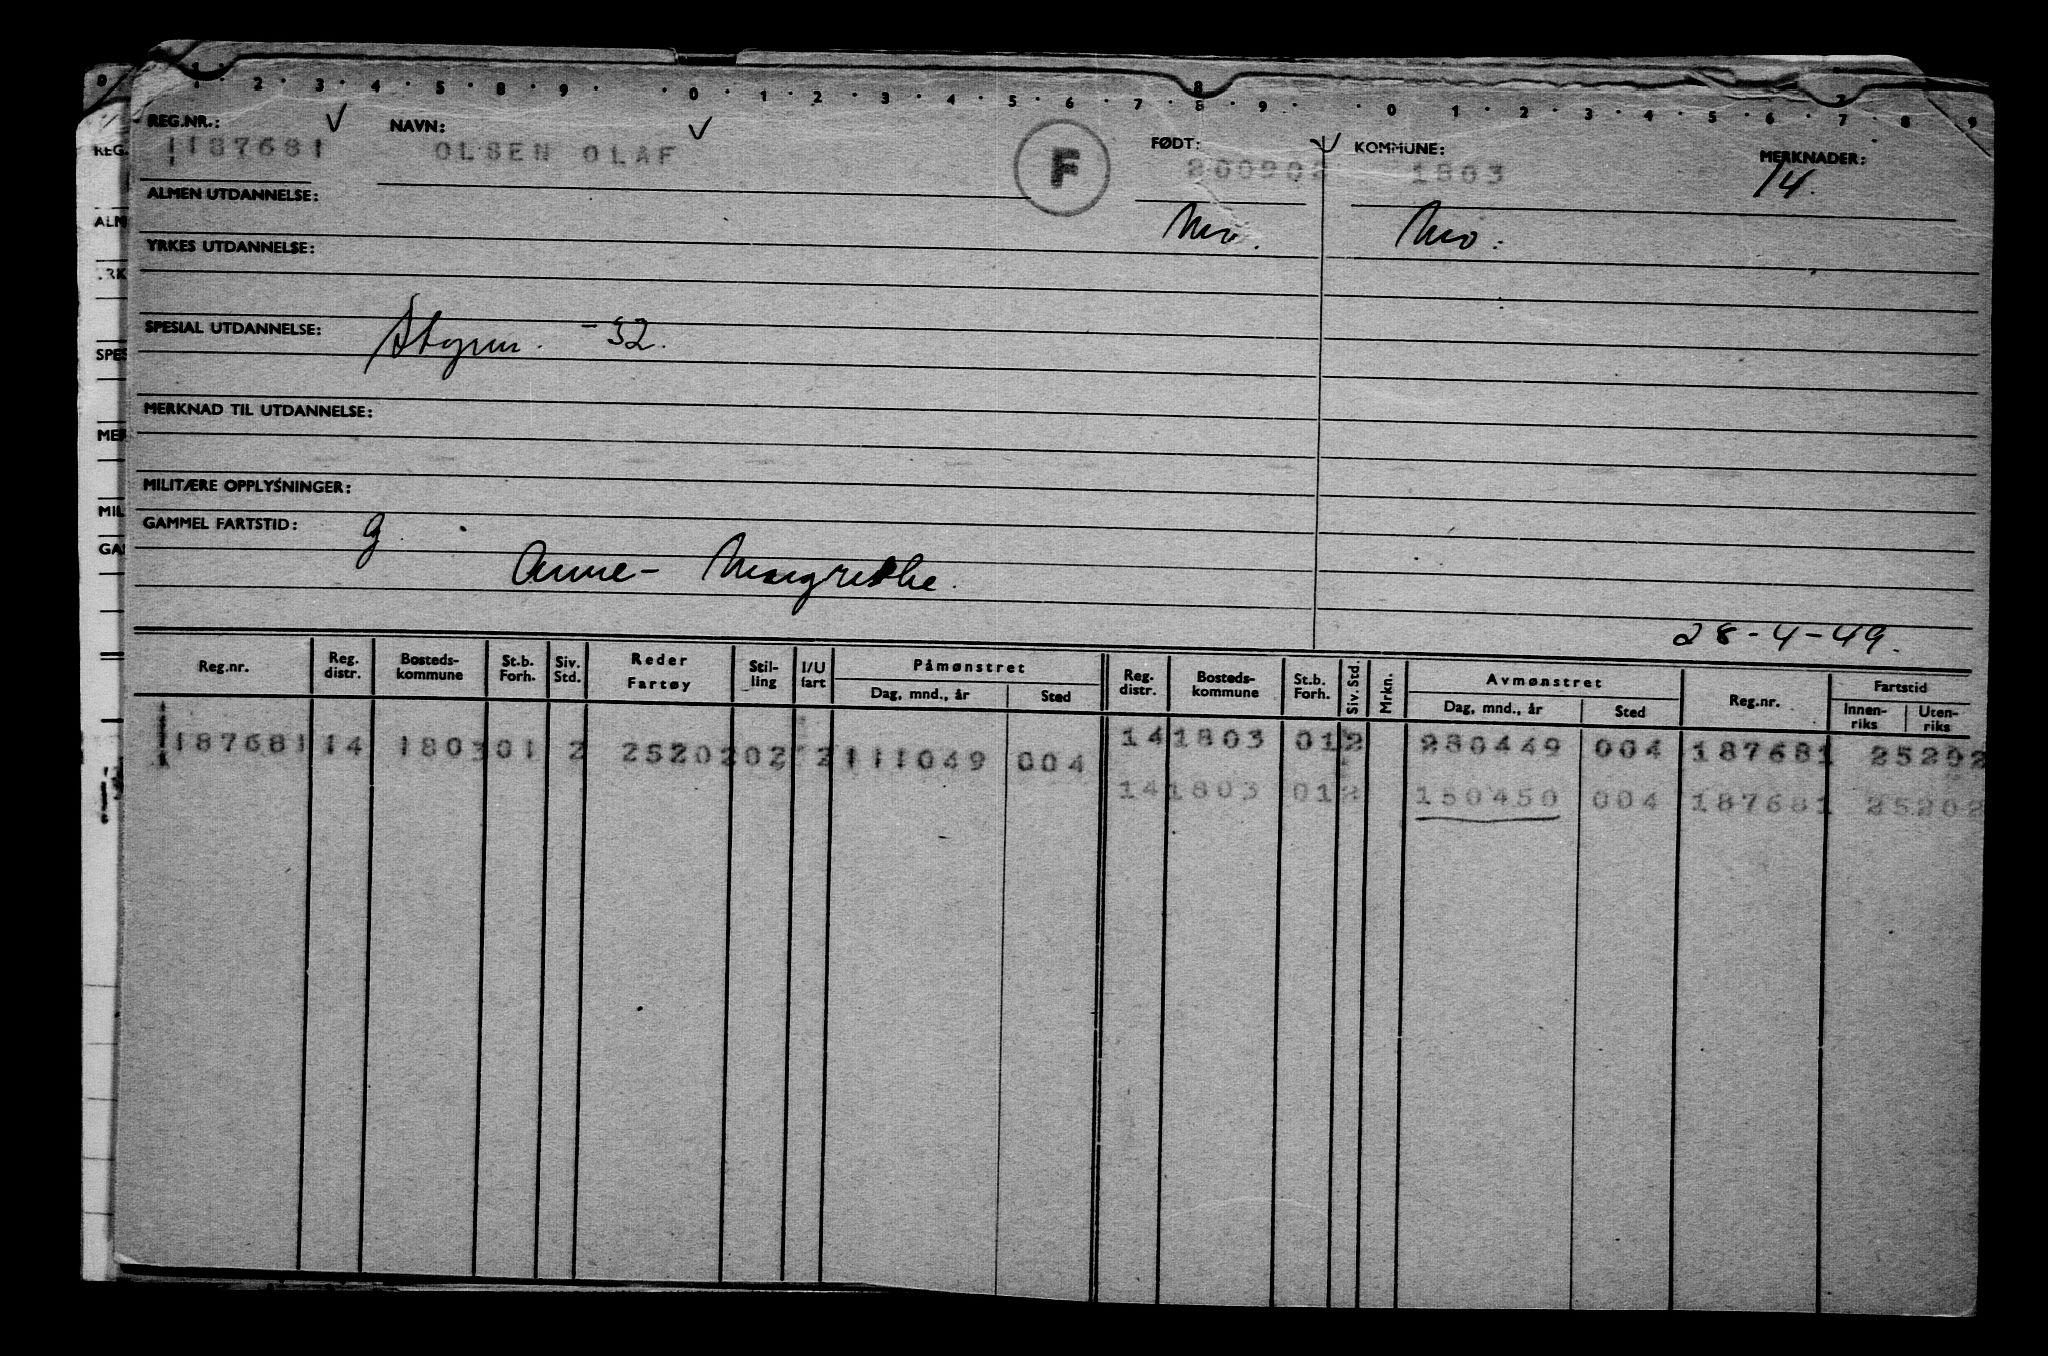 1 2 3 4 5 8 9 0 1 2 3 4 5 6 7 8 9 0 1 2 3 4 5 6 7 8 9
REG.NR.: NAVN: FØDT: KOMMUNE: MERKNADER:
187681 OLSEN OLAF F 200902 1803 14.
ALMEN UTDANNELSE: Mo. Mo.
YRKES UTDANNELSE:
SPESIAL UTDANNELSE: Styrm. -32.
MERKNAD TIL UTDANNELSE:
MILITÆRE OPPLYSNINGER:
GAMMEL FARTSTID: g.
Anne- Margrethe.
28-4-49.
Reg.nr. Reg. distr. Bosteds-kommune St.b. Forh. Siv. Std. Reder Fartøy Stil-ling I/U fart Påmønstret Dag, mnd., år Sted Reg. distr. Bosteds-kommune St.b. Forh. Siv. Std. Mrkn. Avmønstret Dag, mnd., år Sted Reg.nr. Fartstid Innen-riks Uten-riks
187681 14 1803 01 2 25202 02 2 111049 004 14 1803 01 2 280449 004 187681 25202
14 1803 01 2 150450 004 187681 25202